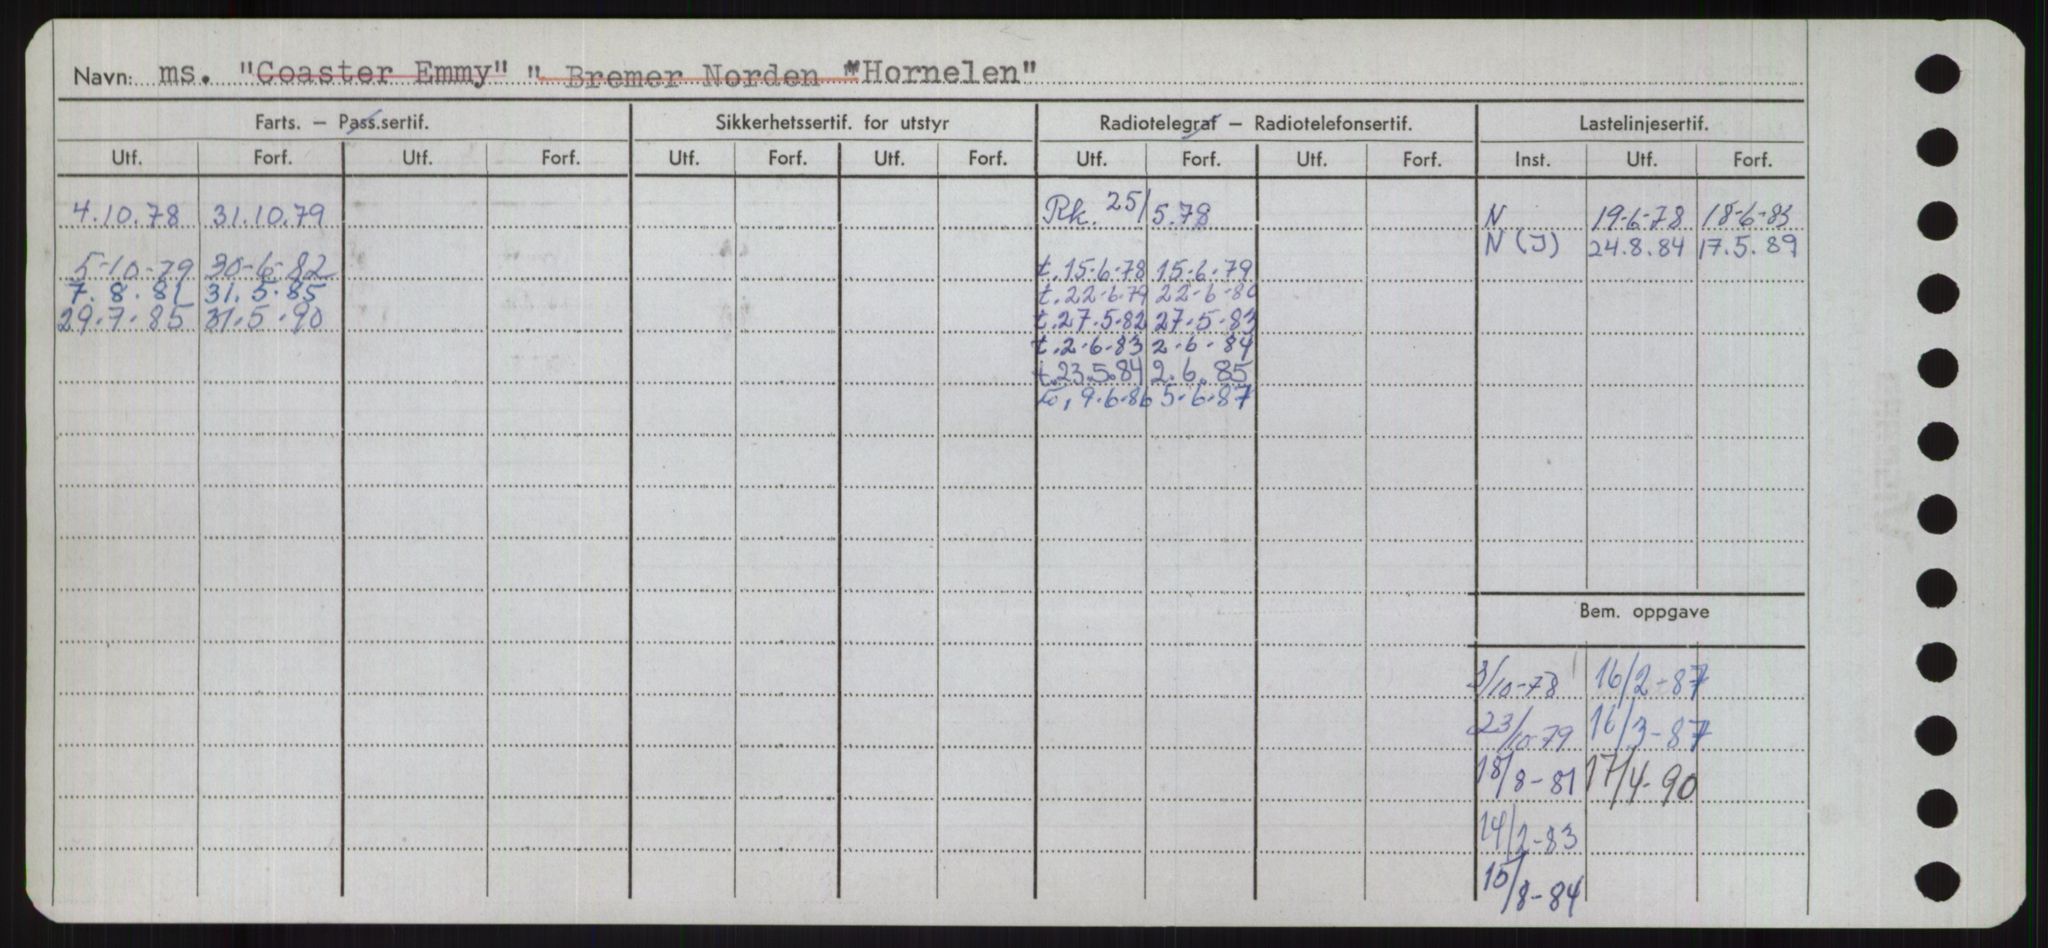 Navn: ms. "Coaster Emmy" " Bremer Norden " "Hornelen"
Farts. — Pass.sertif. Sikkerhetssertif. for utstyr Radiotelegraf — Radiotelefonsertif. Lastelinjesertif.
Utf. Forf. Utf. Forf. Utf. Forf. Utf. Forf. Utf. Forf. Utf. Forf. Inst. Utf. Forf.
4.10.78 31.10.79 Rk. 25/5.78 N 19-6-78 18-6-83
N (I) 24.8.84 17.5.89
5-10-79 30-6-82 t.15-6-78 15-6-79
7.8.81 31.5.85 t.22-6-79 22-6-80
29.7.85 31.5.90 t.27.5.82 27.5.83
t.2-6-83 2-6-84
t.23.5.84 2.6.85
9.6.86 5-6-87
Bem. oppgave
3/10-78 16/2-87
23/10-79 16/3-87
18/8-81 17/4-90
14/2-83
15/8-84